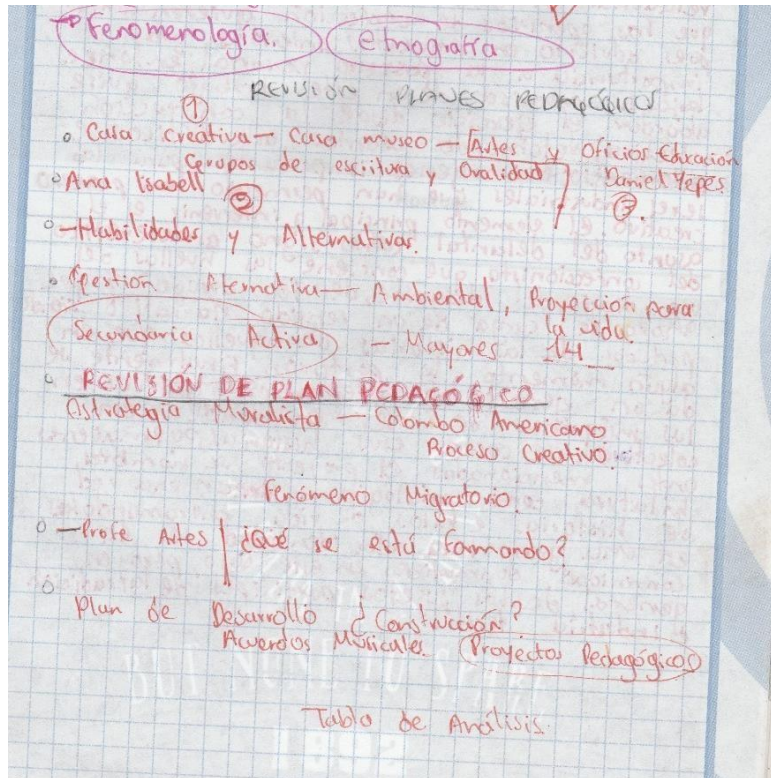 → Fenomenología. etnografía
REVISIÓN PLANES PEDAGÓGICOS
①
○ Casa creativa — Casa museo — Artes y Oficios Educación
Grupos de escritura y Oralidad Daniel Yepes.
○ Ana Isabell ② ③.
○ — Habilidades y Alternativas.
○ Gestión Aternativa — Ambiental, Proyección para
la vida.
Secundaria Activa — Mayores 14
○ REVISIÓN DE PLAN PEDAGÓGICO
Estrategia Muralista — Colombo Americano
Proceso Creativo.
Fenómeno Migratorio.
○ — Profe Artes | ¿Qué se está formando?
○ Plan de Desarrollo ¿Construcción?
Acuerdos Músicales. Proyectos Pedagógicos
Tabla de Análisis.